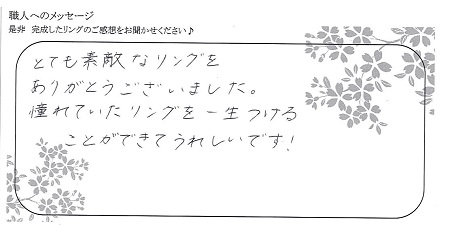 職人へのメッセージ
是非 完成したリングのご感想をお聞かせください♪
とても素敵なリングを
ありがとうございました。
憧れていたリングを一生つける
ことができてうれしいです!